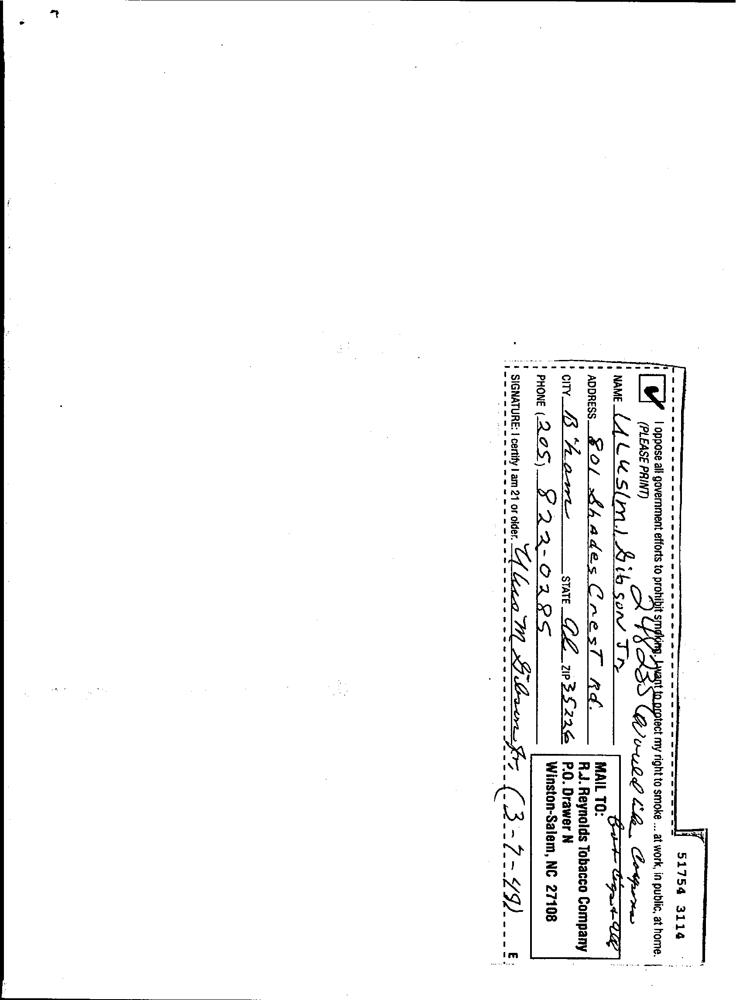 51754 3114
I oppose all government efforts to prohibit smoking. I want to protect my right to smoke ... at work, in public, at home.
(PLEASE PRINT)
248235 (Would like Coupons
NAME ULUS (M.) Gibson Jr
ADDRESS 801 Shades Crest Rd.
CITY B'ham STATE al ZIP 35226
PHONE (205) 822-0285
SIGNATURE: I certify I am 21 or older. Ulus M Gibson Jr. (3-7-49)
MAIL TO:
R.J. Reynolds Tobacco Company
P.O. Drawer N
Winston-Salem, NC 27108
E